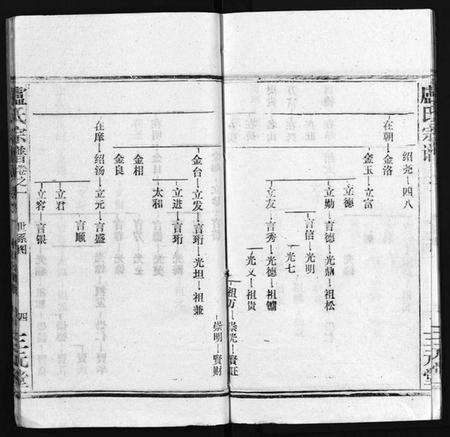 盧氏宗譜
绍尧—四八
在朝—金洛
金玉—立富
立德
立勋—言德—光鼎—祖松
言信—光明
光七
立友—言秀—光德—祖镛
光义—祖贵
祖方—崇光—贤旺
崇明—贤财
金台—立发—言珩—光坦—祖兼
立进—言珩
太和
金相
金良
在庠—绍汤—立元—言盛
言顺
立君
立容—言银
盧氏宗譜卷之一
世系图
四
三元堂